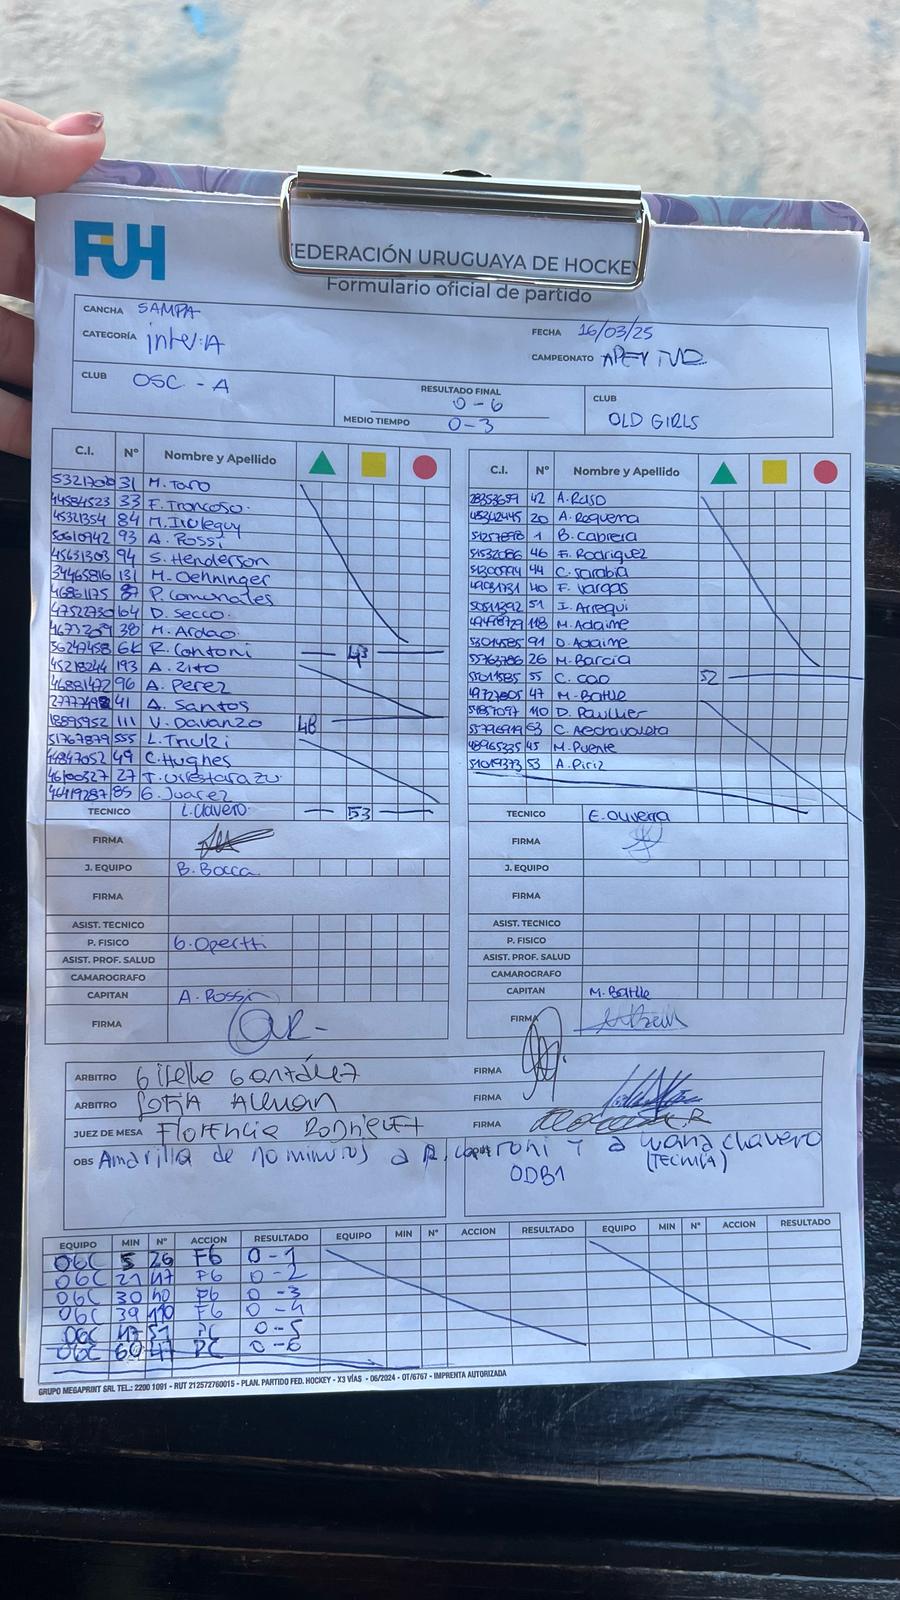 FUH
FEDERACIÓN URUGUAYA DE HOCKEY
Formulario oficial de partido
CANCHA SAMPA
FECHA 16/03/25
CATEGORÍA
CAMPEONATO
CLUB OSC - A
RESULTADO FINAL
0 - 6
CLUB
OLD GIRLS
MEDIO TIEMPO 0 - 3
C.I. Nº Nombre y Apellido
31 M. Toro
44584523 33 F. Troncoso.
45321354 84
50610942 93 A. Rossi
45631303 94 S. Henderson
34465816 131 M. Oehninger
46861175
47522730 164 D. Secco.
38 M. Ardao
36247458
45218244 193 A. Zito
46881472 96 A. Perez
41 A. Santos
18895952 111 V. Davanzo 48
51767879 555
44847052 49 C. Hughes
46100327 27
46419287 85 G. Juarez
TECNICO L. Clavero. 53
FIRMA
J. EQUIPO B. Bocca
FIRMA
ASIST. TECNICO
P. FISICO G. Opertti
ASIST. PROF. SALUD
CAMAROGRAFO
CAPITAN A. Rossi
FIRMA
C.I. Nº Nombre y Apellido
28353659 42
45342445 20 A. Requena
1 B. Cabrera
51532086 46 F. Rodriguez
44 C. Sarabia
40 F. Vargas
50511392 51 I. Arregui
118 M. Adaime
53014585 91 D. Adaime
26 M. Barcia
55 C. Cao 52
49727805 47 M. Batlle
110 D. Paullier
63
48965335 45 M. Puente
51019373 53 A. Piriz
TECNICO E. Oliverra
FIRMA
J. EQUIPO
FIRMA
ASIST. TECNICO
P. FISICO
ASIST. PROF. SALUD
CAMAROGRAFO
CAPITAN M. Batlle
FIRMA
ARBITRO González FIRMA
ARBITRO Sofía Aleman FIRMA
JUEZ DE MESA Florencia Rodriguez FIRMA
OBS Amarilla de 10 minutos a
(TECNICA)
EQUIPO MIN Nº ACCION RESULTADO EQUIPO MIN Nº ACCION RESULTADO EQUIPO MIN Nº ACCION RESULTADO
OGC 5 26 FG 0 - 1
OGC 21 47 FG 0 - 2
OGC 30 40 FG 0 - 3
OGC 39 110 FG 0 - 4
OGC 47 51 PC 0 - 5
OGC 60 47 PC 0 - 6
GRUPO MEGAPRINT SRL TEL.: 2200 1091 - RUT 212572760015 - PLAN. PARTIDO FED. HOCKEY - X3 VÍAS - 06/2024 - OT/6767 - IMPRENTA AUTORIZADA